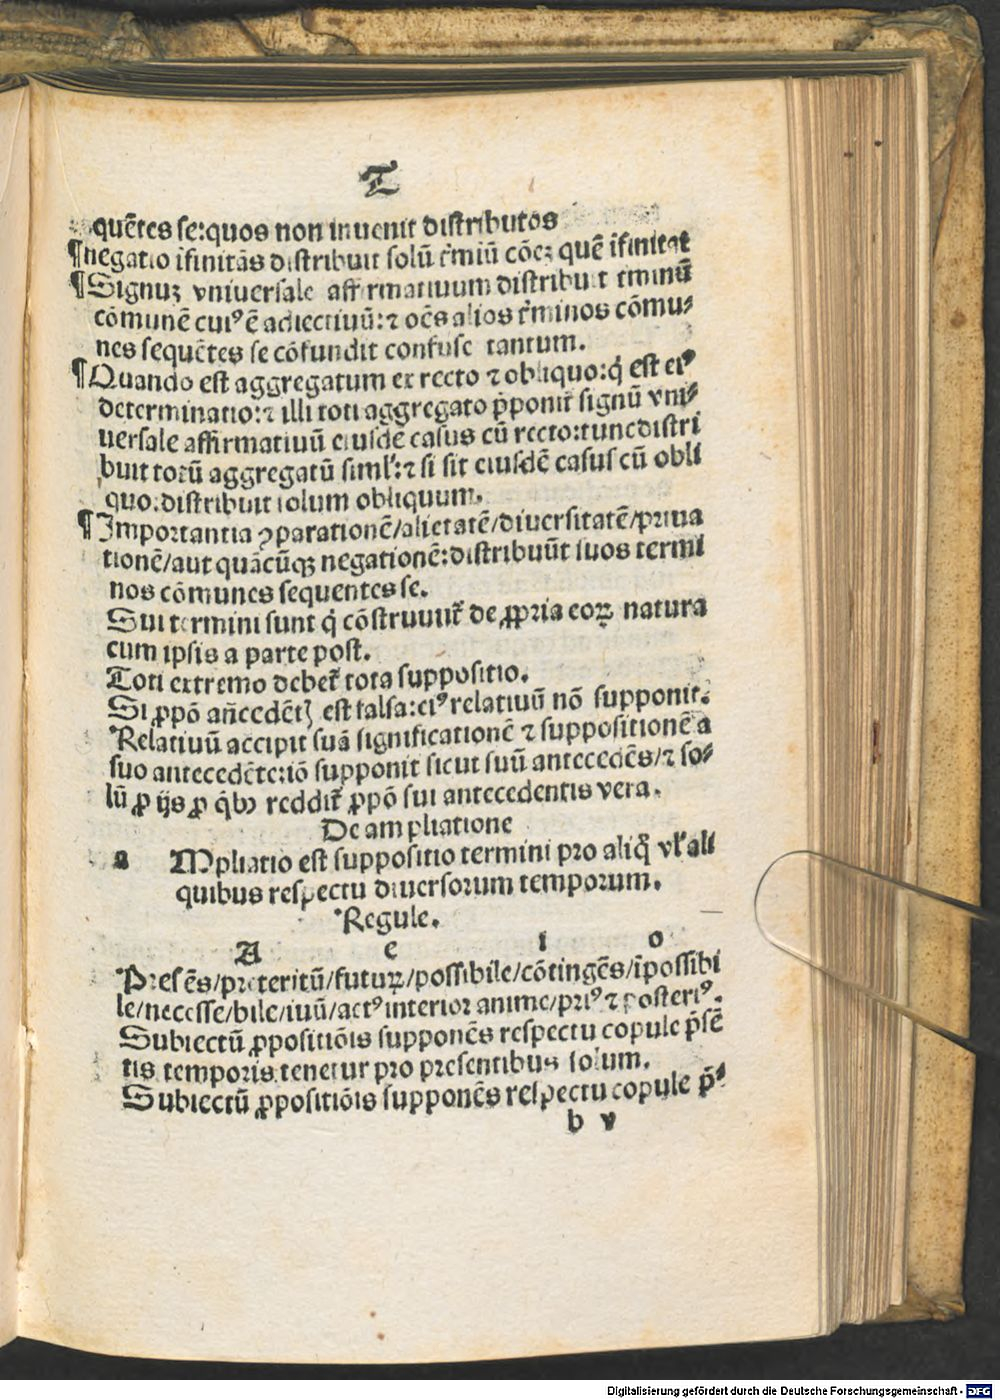 T
quētes se:quos non inuenit distributos
¶negatio īfinitās distribuit solū t̄miū cōeꝫ quē īfinitat
¶Signuꝫ vniuersale affirmatiuum distribuit tminū
cōmunē cuiꝰ ē adiectiuū:⁊ oēs alios t̄minos cōmu⸗
nes sequētes se cōfundit confuse tantum.
¶Quando est aggregatum ex recto ⁊ obliquo:q̇ est eiꝰ
determinatio:⁊ illi toti aggregato p̄ponit᷑ signū vni⸗
uersale affirmatiuū eiusdē casus cū recto:tunc distri
buit totū aggregatū siml᷑:⁊ si sit eiusdē casus cū obli
quo:distribuit solum obliquum.
¶Importantia ꝯparationē/alietatē/diuersitatē/priua
tionē/aut quācūqꝫ negationē:distribuūt suos termi
nos cōmunes sequentes se.
Sui termini sunt q̇ cōstruuut᷑ de ꝓpria eoꝝ natura
cum ipsis a parte post.
Toti extremo debet᷑ tota suppositio.
Si ꝓpō añcedēt᷒ est falsa:eiꝰ relatiuū nō supponit.
Relatiuū accipit suā significationē ⁊ suppositionē a
suo antecedēte:iō supponit sicut suū antecedēs/⁊ so⸗
lū ꝓ ijs ꝓ q̇bꝫ reddit᷑ ꝓpō sui antecedentis vera.
De ampliatione
a Mpliatio est suppositio termini pro aliq̊ vl᷑ ali
quibus respectu diuersorum temporum.
Regule.
A e i o
Presēs/preteritū/futuꝝ/possibile/cōtingēs/īpossibi
le/necesse/bile/iuū/actꝰ interior anime/priꝰ ⁊ posteriꝰ.
Subiectū ꝓpositiōis supponēs respectu copule p̄sē
tis temporis.tenetur pro presentibus solum.
Subiectū ꝓpositiōis supponēs respectu copule p̄⸗
b v
Digitalisierung gefördert durch die Deutsche Forschungsgemeinschaft - DFG